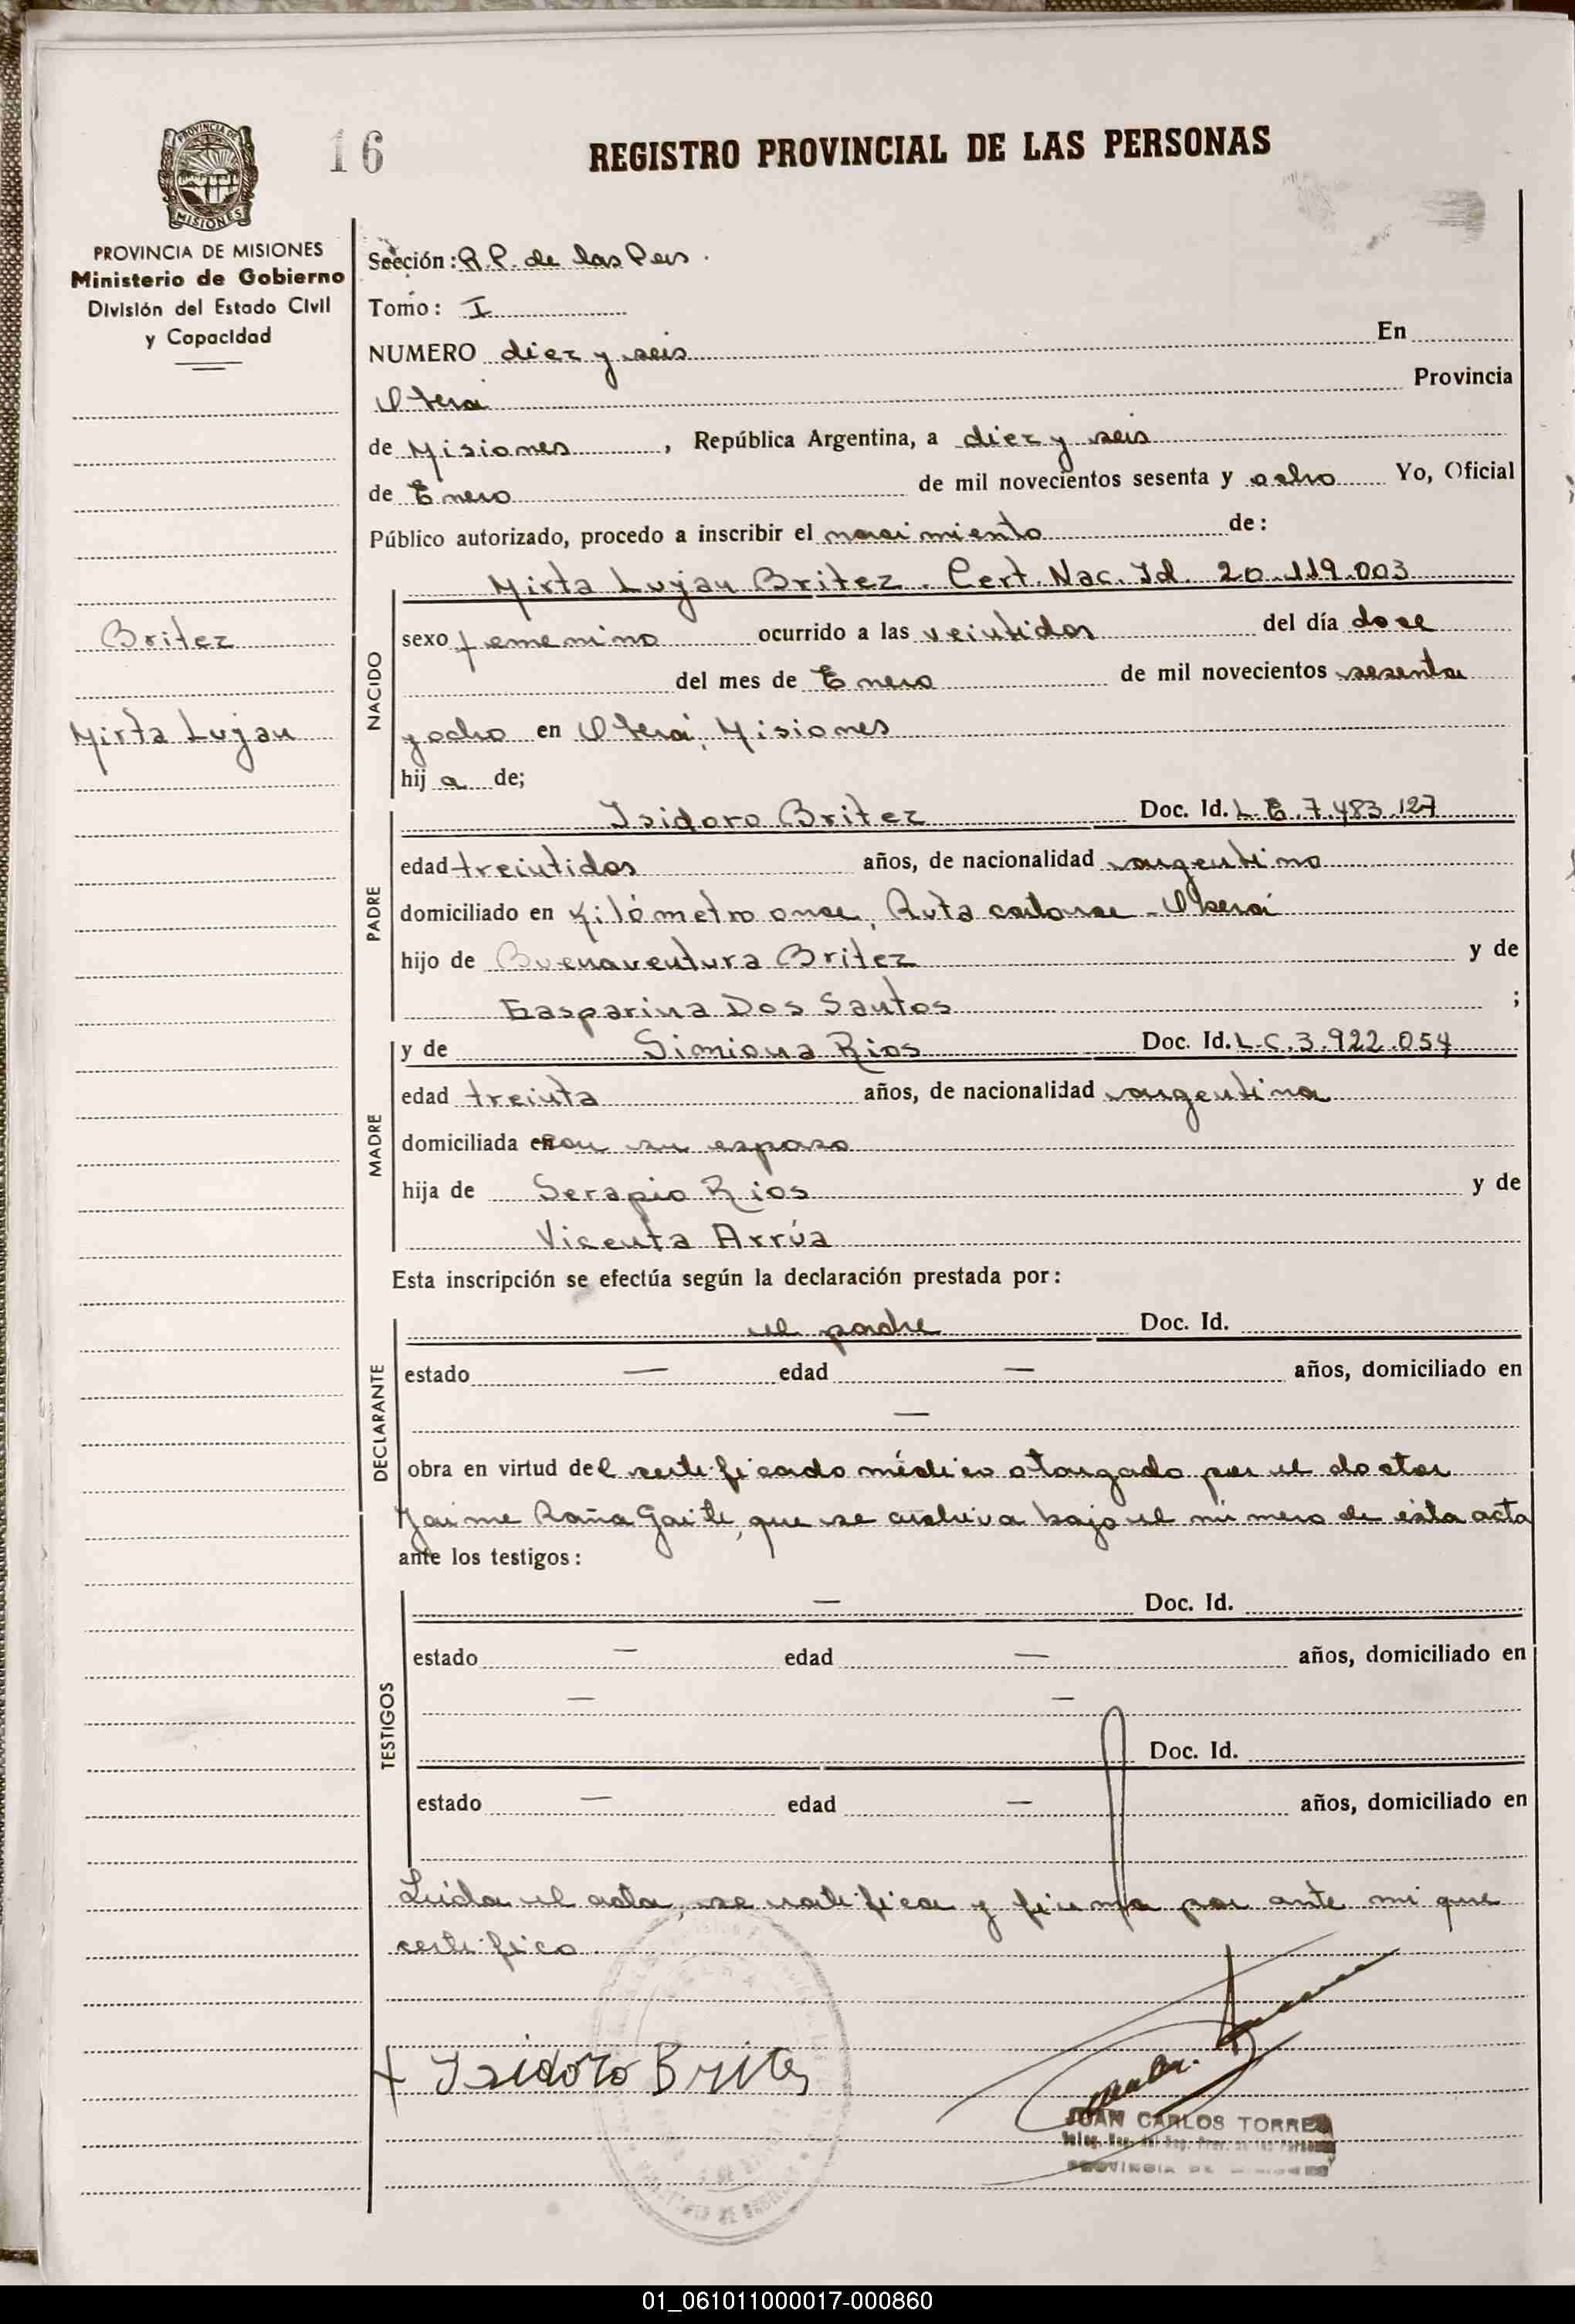 PROVINCIA DE
MISIONES
16
REGISTRO PROVINCIAL DE LAS PERSONAS
PROVINCIA DE MISIONES
Ministerio de Gobierno
División del Estado Civil
y Capacidad
Sección: R.P. de las Pers.
Tomo: I
NUMERO diez y seis En
Oberá Provincia
de Misiones, República Argentina, a diez y seis
de Enero de mil novecientos sesenta y ocho Yo, Oficial
Público autorizado, procedo a inscribir el nacimiento de:
Mirta Lujan Britez. Cert. Nac. Id. 20.119.003
Britez
Mirta Lujan
NACIDO
sexo femenino ocurrido a las veintidos del día doce
del mes de Enero de mil novecientos sesenta
y ocho en Oberá, Misiones
hija de;
PADRE
Isidoro Britez Doc. Id. L.E. 7.483.127
edad treintidos años, de nacionalidad argentino
domiciliado en Kilómetro once, Ruta catorce - Oberá
hijo de Buenaventura Britez y de
Gasparina Dos Santos ;
MADRE
y de Simiona Rios Doc. Id. L.C. 3.922.054
edad treinta años, de nacionalidad argentina
domiciliada en con su esposo
hija de Serapio Rios y de
Vicenta Arrúa
Esta inscripción se efectúa según la declaración prestada por:
DECLARANTE
el padre Doc. Id.
estado — edad — años, domiciliado en
—
obra en virtud del certificado médico otorgado por el doctor
Jaime Raña que se archiva bajo el número de ésta acta
ante los testigos:
TESTIGOS
— Doc. Id.
estado — edad — años, domiciliado en
— —
Doc. Id.
estado — edad — años, domiciliado en
Leída el acta, se ratifica y firma por ante mi que
certifico
+ Isidoro Britez
JUAN CARLOS TORRES
PROVINCIA DE MISIONES
01_061011000017-000860